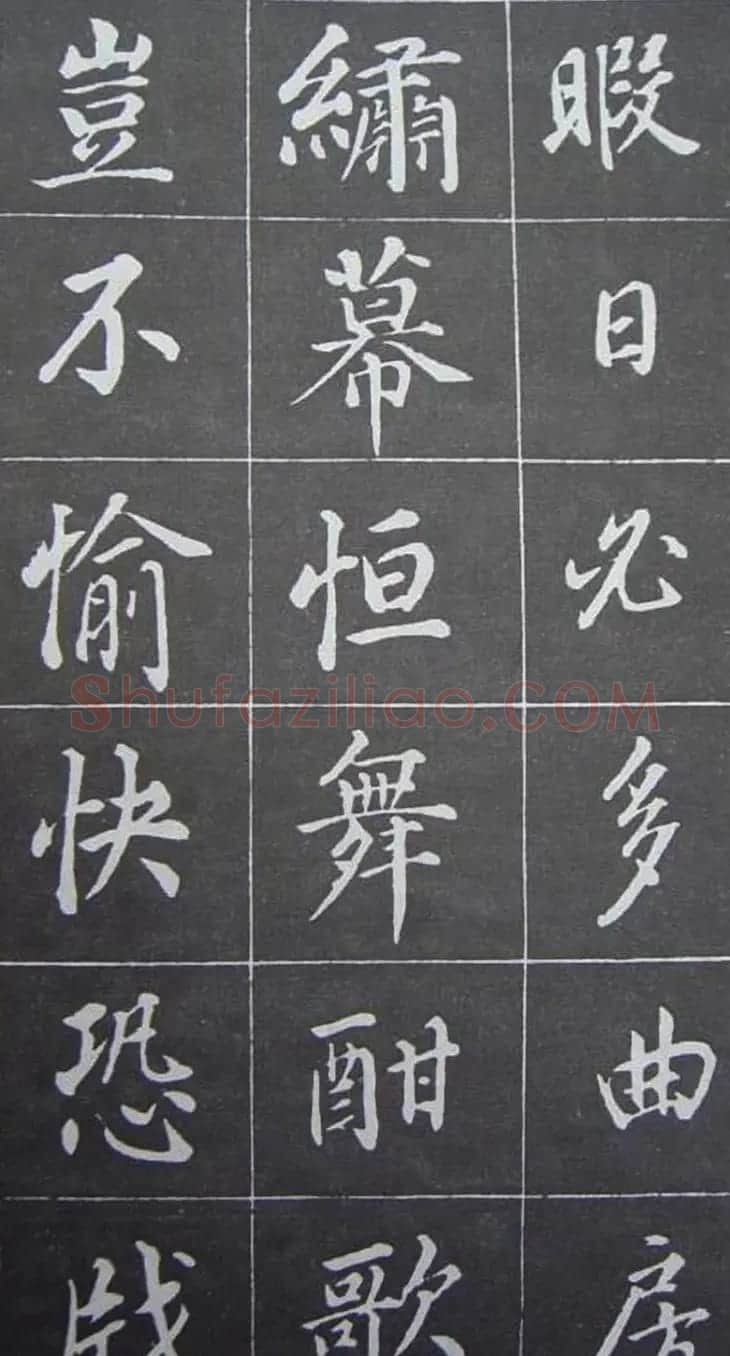 暇日必多曲房
繡幕恒舞酣歌
豈不愉快恐戕
Shufaziliao.COM